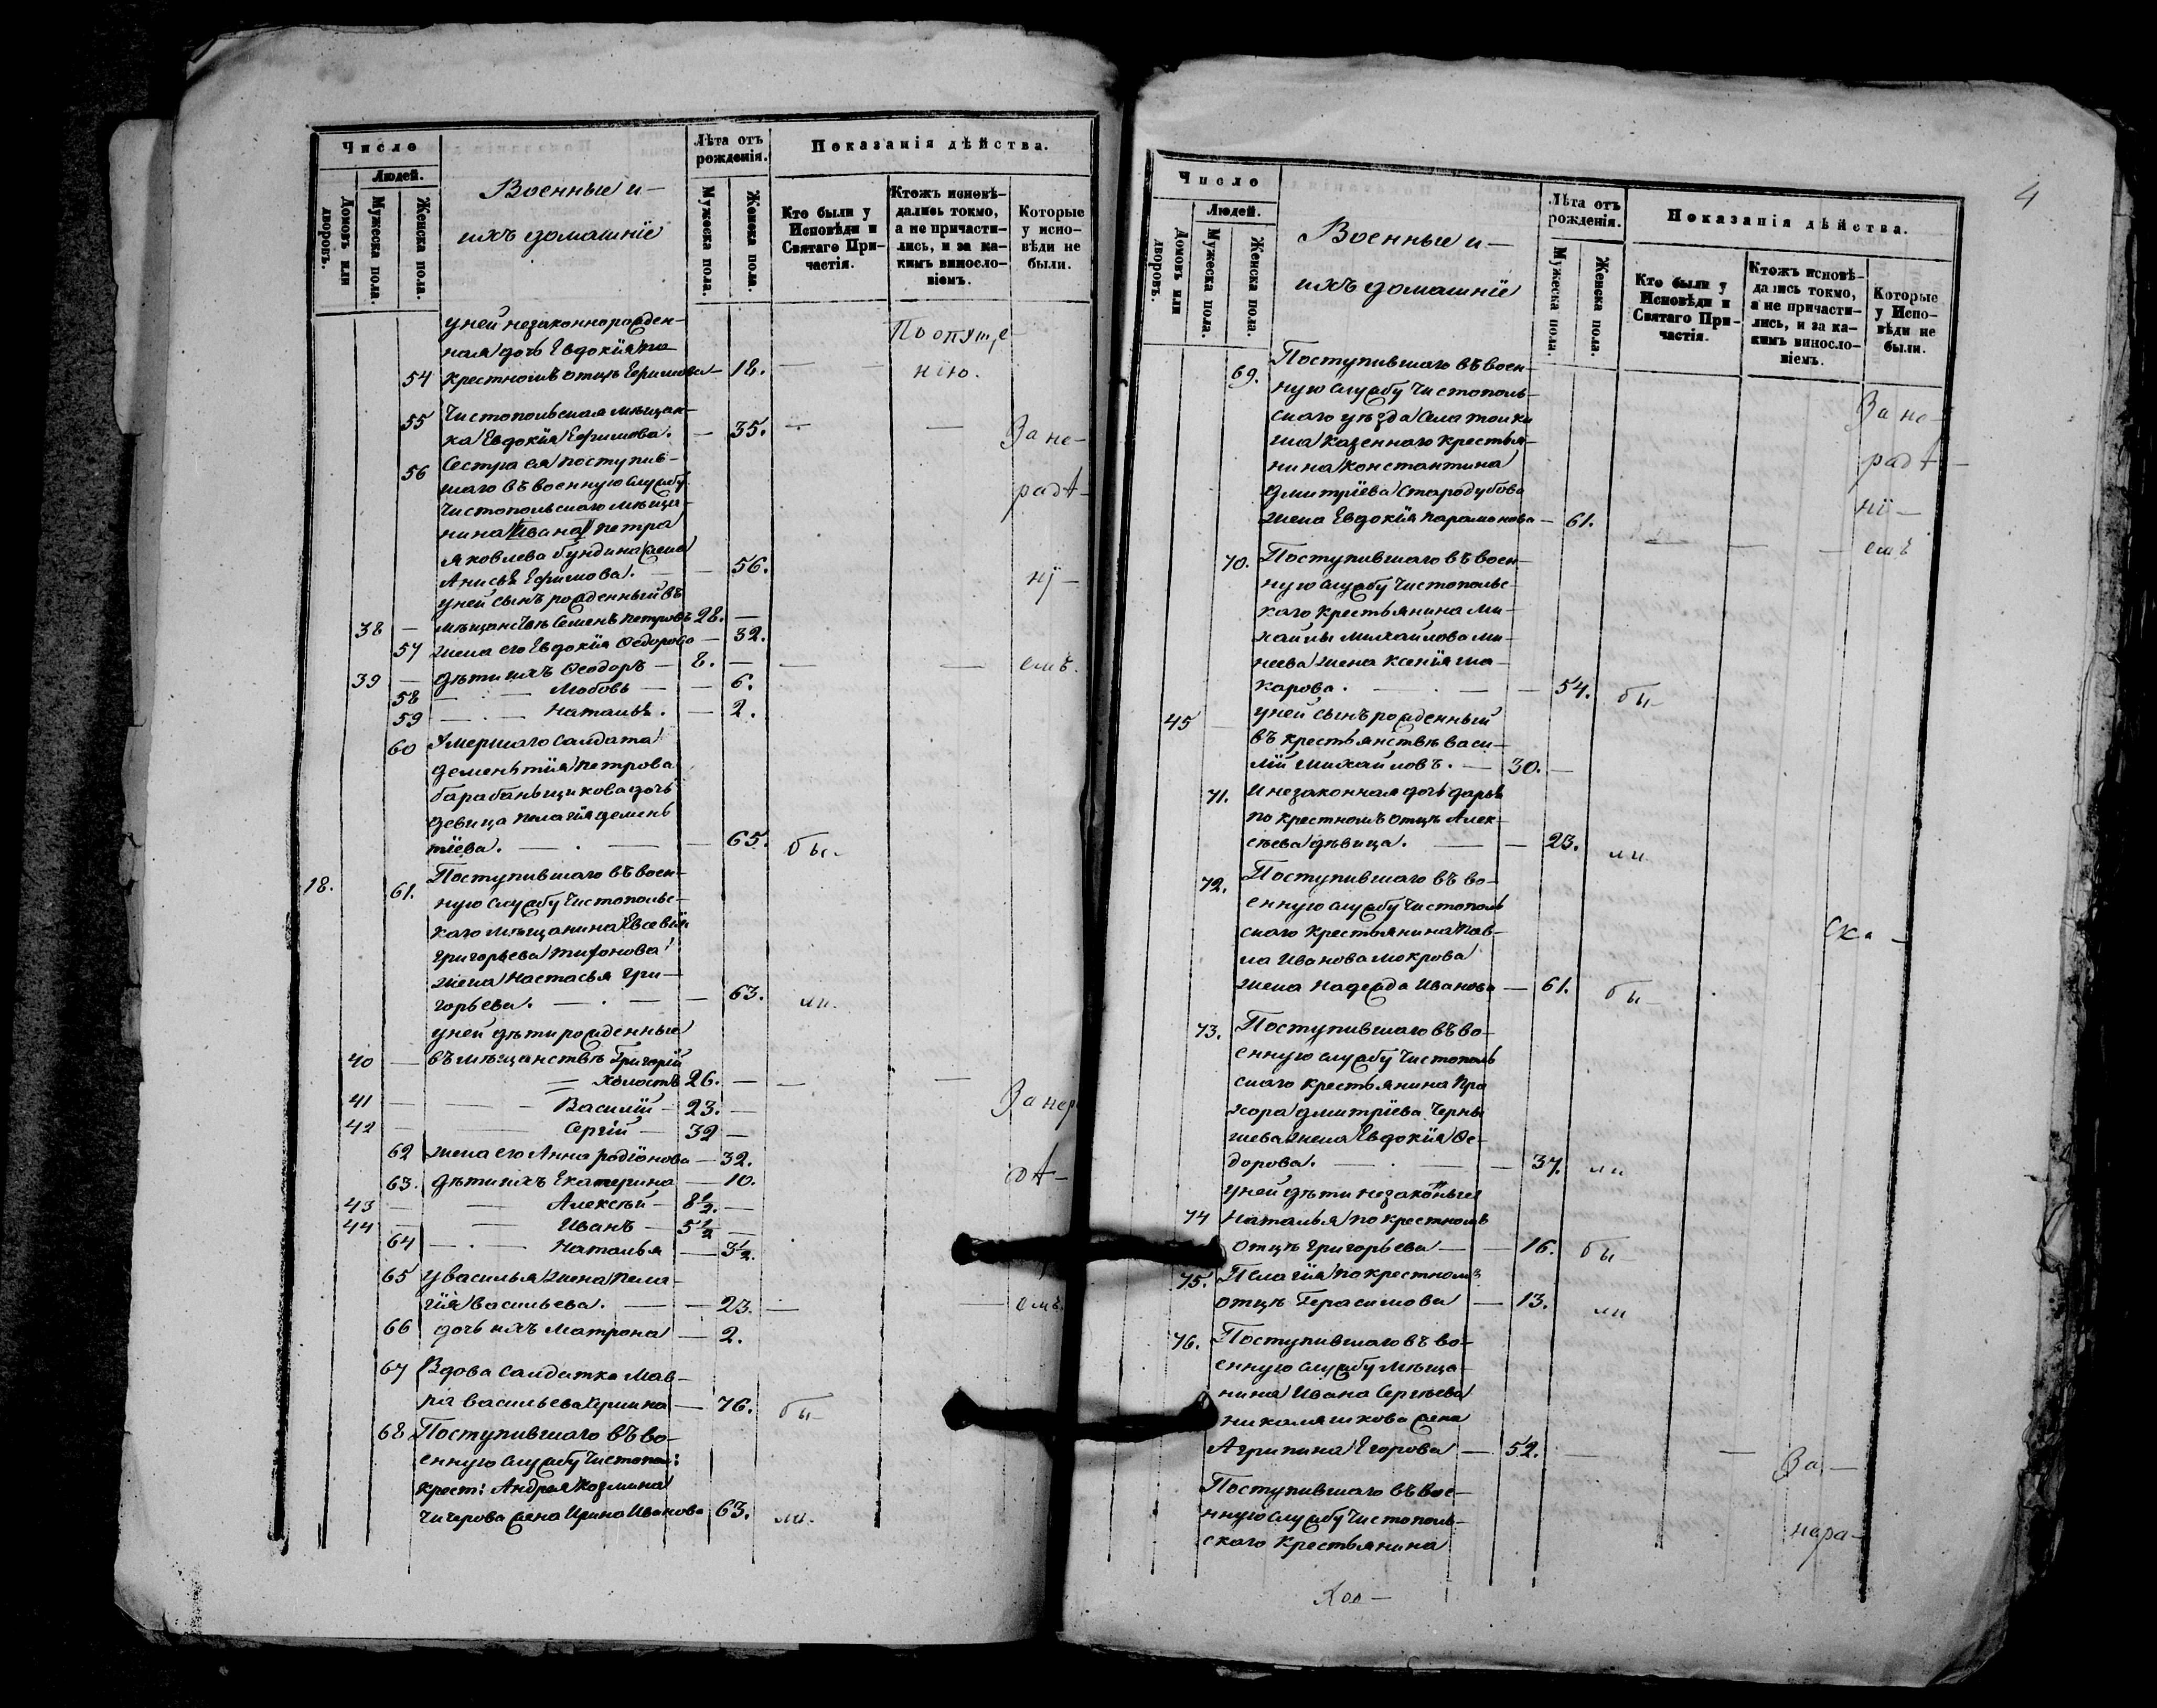 Число
Людей.
Домовъ или дворовъ.
Мужеска пола.
Женска пола.
Военные и
ихъ домашніе
Лѣта отъ рожденія.
Мужеска пола.
Женска пола.
Показанія дѣйства.
Кто были у Исповѣди и Святаго Причастія.
Ктожъ исповѣдались токмо, а не причастились, и за какимъ винословіемъ.
Которые у исповѣди не были.
у ней незаконнорожден-
ная дочь Евдокія по
54 крестномъ отцѣ Ефимова — 18. — По опуще нію.
55 Чистопольская мѣщан-
ка Евдокія Ефимова. — 35. — — За не-
56 Сестра ея поступив-
шаго въ военную службу радѣ-
Чистопольскаго мѣща-
нина Ивана Петра
Яковлева Бундина жена
Анисья Ефимова. — 56. ні-
у ней сынъ рожденный въ
38 — мѣщанствѣ Семенъ Петровъ 28. —
57 жена его Евдокія Ѳедорова — 32.
39 — дѣти ихъ Ѳеодоръ — 8. — — — емъ.
58 — Любовь — 6.
59 — Наталья. — 2.
60 Умершаго солдата
Дементія Петрова
Барабанщикова дочь
девица Пелагія Демень
тіева. — 65. бы-
18. 61. Поступившаго въ воен-
ную службу Чистопольс-
каго мѣщанина Евсевія
Григорьева
жена Настасья Гри-
горьева. — 63. ли.
у ней дѣти рожденные
40 — въ мѣщанствѣ Григорій
— холостъ 26. — — —
41 — Василій — 23. — За нер
42 — Сергій — 32 —
62 жена его Анна Родіонова — 32.
63. дѣти ихъ Екатерина — 10. адѣ-
43 — Алексѣй — 8½. —
44 — Иванъ — 5½ —
64 — Наталья — 3½.
65 у Василья жена Пела-
гія Васильева. — 23. — — емъ.
66 дочь ихъ Матрона — 2.
67 Вдова солдатка Мав-
ра Васильева — 76. бы-
68 Поступившаго въ во-
енную службу Чистопол:
крест: Андрея Козмина
Чигерова жена Ирина Иванова 63. ли.
4
Число
Людей.
Домовъ или дворовъ.
Мужеска пола.
Женска пола.
Военные и
ихъ домашніе
Лѣта отъ рожденія.
Мужеска пола.
Женска пола.
Показанія дѣйства.
Кто были у Исповѣди и Святаго Причастія.
Ктожъ исповѣдались токмо, а не причастились, и за какимъ винословіемъ.
Которые у Исповѣди не были.
69. Поступившаго въ воен-
ную службу Чистополь- За не-
скаго уѣзда села Толки
ша казеннаго крестья-
нина Константина радѣ-
Дмитріева Стародубова
жена Евдокія Парамонова — 61. ні-
70. Поступившаго въ воен- — — — емъ
ную службу Чистопольс-
каго крестьянина Ми-
хайлы Михайлова Ми-
неева жена Ксенія Ма-
карова. — 54. бы-
45 у ней сынъ рожденный
въ крестьянствѣ Васи-
лій Михайловъ. — 30. —
71. И незаконная дочь Дарья
по крестномъ отцѣ Алек-
сѣева дѣвица. — 23. ли
72. Поступившаго въ во-
енную службу Чистополь
скаго крестьянина Пав-
ла Иванова Мокрова
жена Надежда Иванова — 61. бы-
73. Поступившаго въ во-
енную службу Чистополь
скаго крестьянина Про
хора Дмитріева Черны
шева жена Евдокія Ѳе-
дорова. — 37. ли
у ней дѣти незаконные
74 Наталья по крестномъ
отцѣ Григорьева — 16. бы
75. Пелагія по крестномъ
отцѣ Герасимова — 13. ли
76. Поступившаго въ во-
енную службу мѣща-
нина Ивана Сергѣева
жена
Агрипина Егорова — 52. — — За-
Поступившаго въ вое-
нную службу Чистополь- нера-
скаго крестьянина